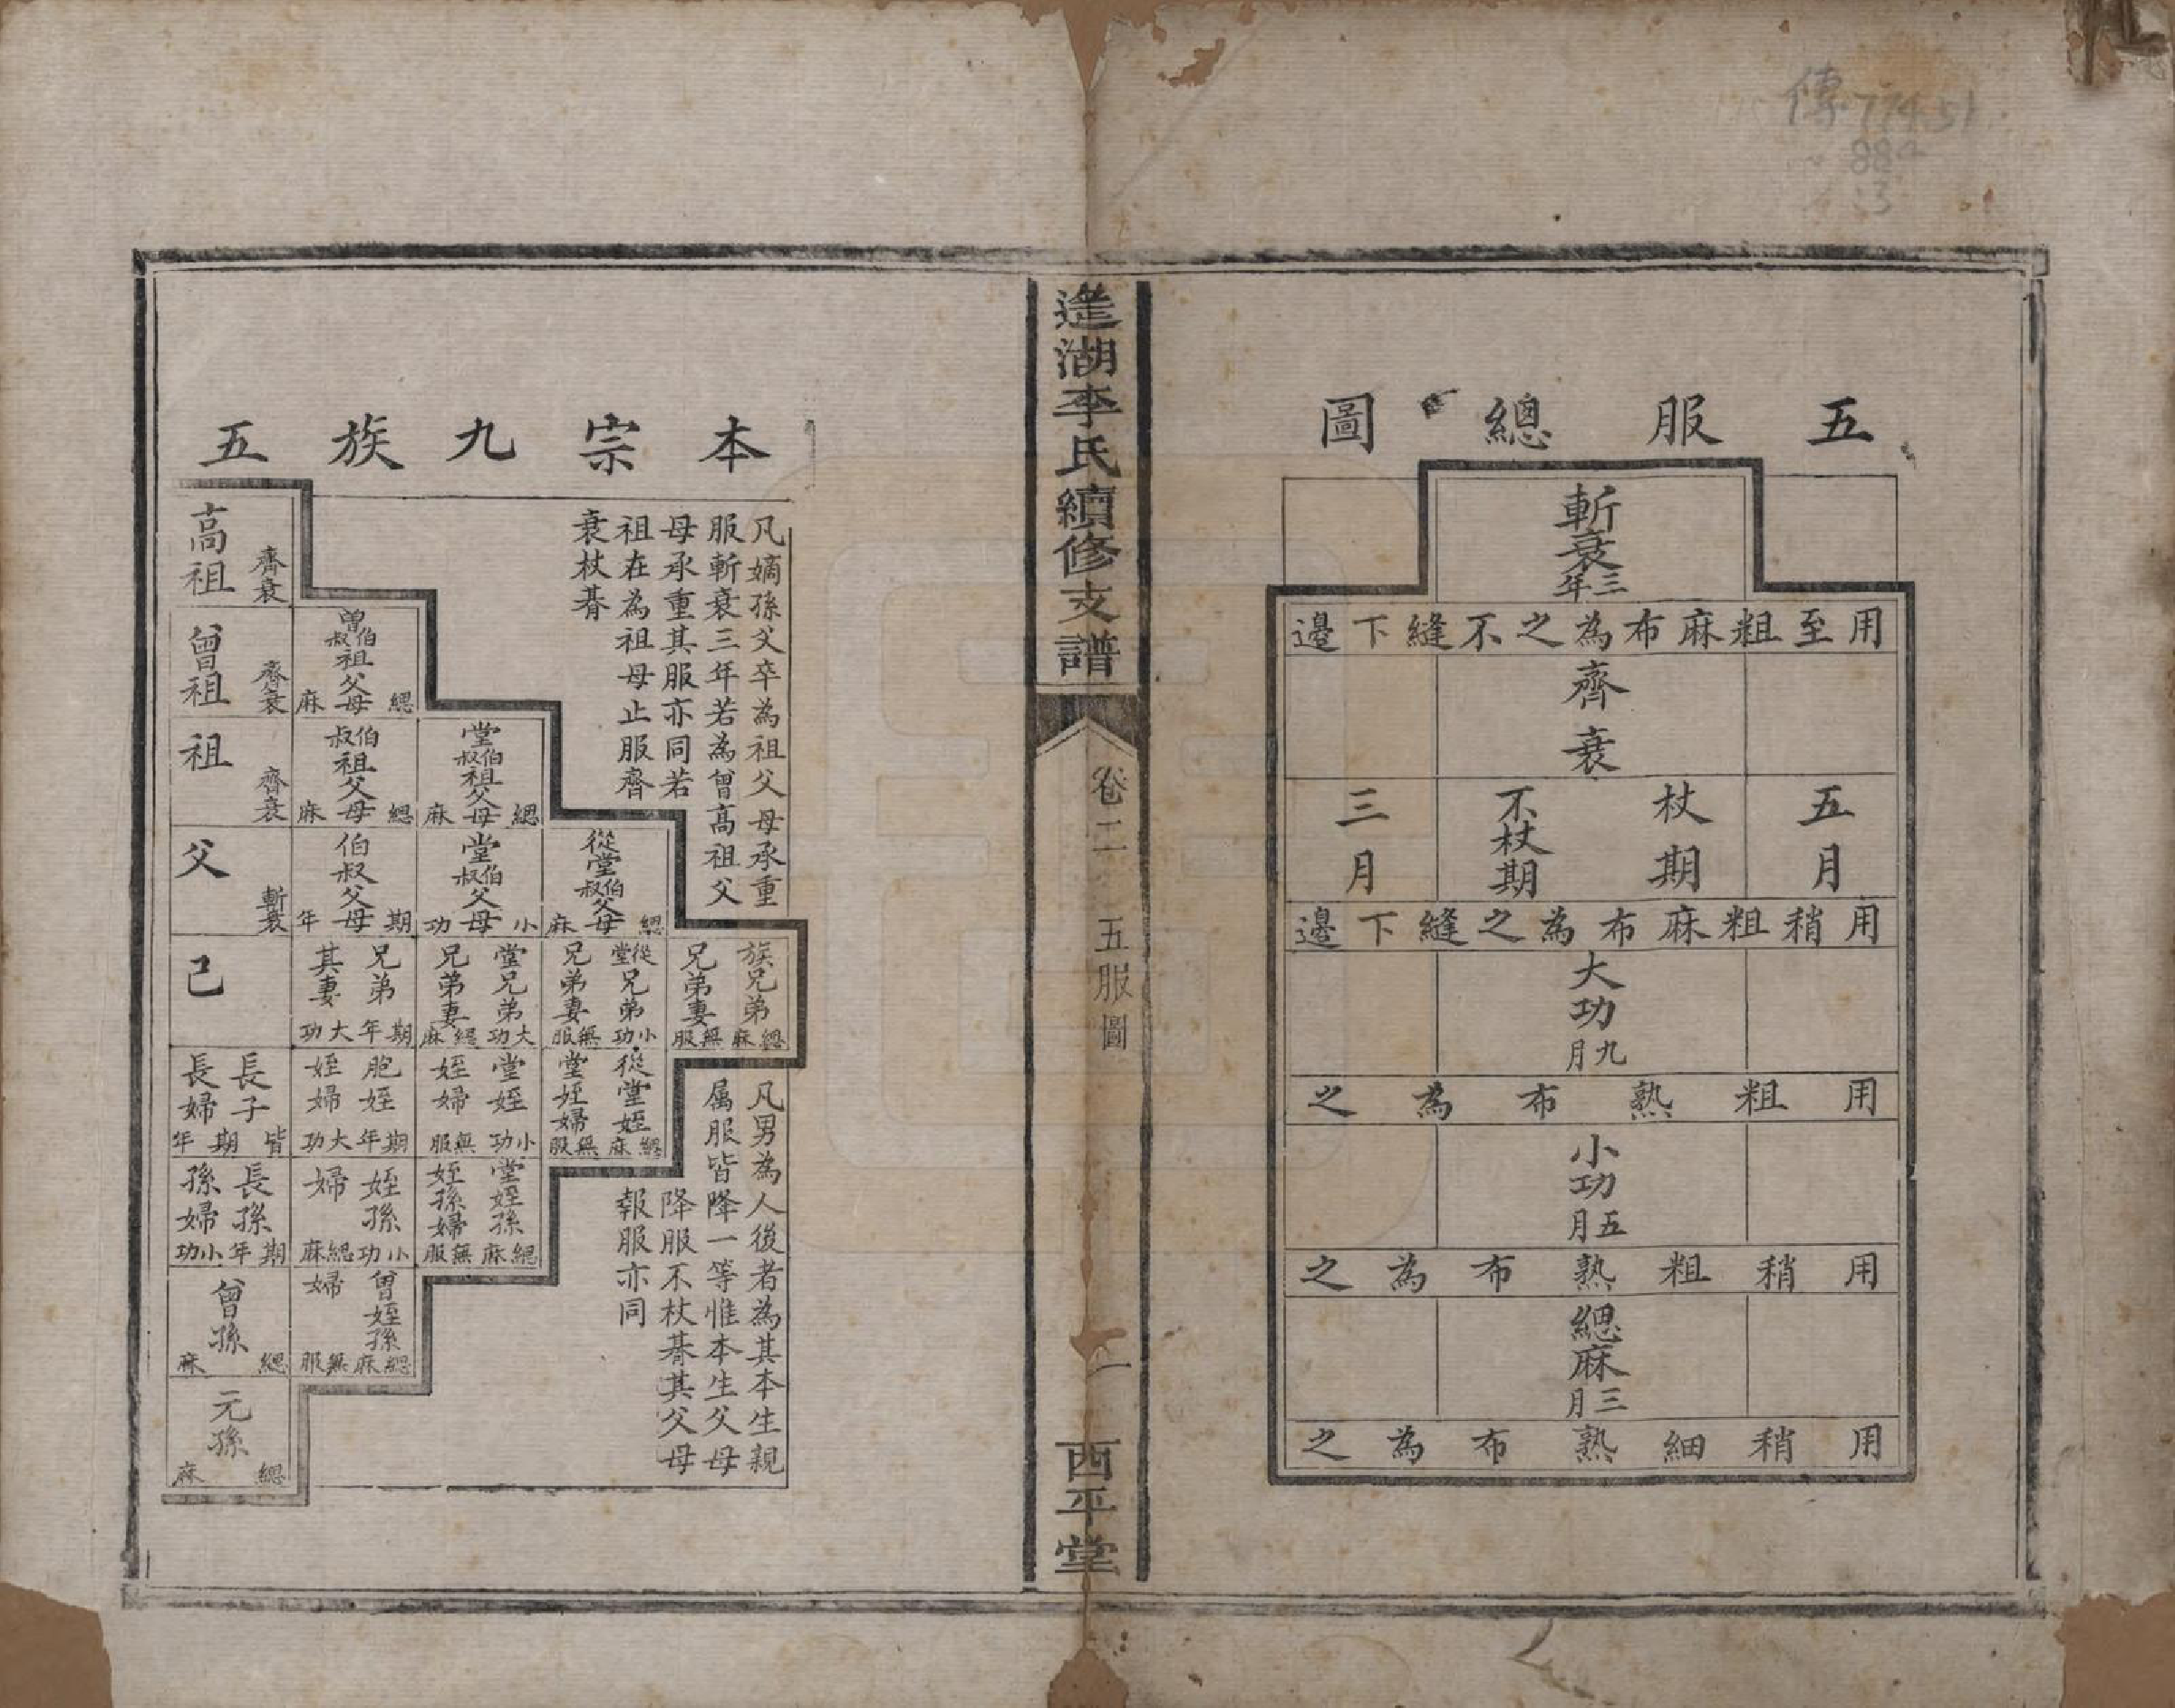 傳 774.51
884
:3
五服總圖
斬衰三年
用至粗麻布為之不縫下邊
齊衰
五月
杖期
不杖期
三月
用稍粗麻布為之縫下邊
大功九月
用粗熟布為之
小功五月
用稍粗熟布為之
緦麻三月
用稍細熟布為之
遙湖李氏續修支譜
卷二
五服圖
一
西平堂
本宗九族五
凡嫡孫父卒為祖父母承重
服斬衰三年若為曾高祖父
母承重其服亦同若
祖在為祖母止服齊
衰杖朞
高祖 齊衰
曾伯叔祖父母 緦麻
曾祖 齊衰
堂伯叔祖父母 緦麻
伯叔祖父母 緦麻
祖 齊衰
從堂伯叔父母 緦麻
堂伯叔父母 小功
伯叔父母 期年
父 斬衰
族兄弟 緦麻
兄弟妻 無服
從堂兄弟 小功
兄弟妻 無服
堂兄弟 大功
兄弟妻 緦麻
兄弟 期年
其妻 大功
己
從堂姪 緦麻
堂姪婦 無服
堂姪 小功
姪婦 無服
胞姪 期年
姪婦 大功
長子
長婦 皆期年
堂姪孫 緦麻
姪孫婦 無服
姪孫 小功
婦 緦麻
長孫 期年
孫婦 小功
曾姪孫 緦麻
婦 無服
曾孫 緦麻
元孫 緦麻
凡男為人後者為其本生親
属服皆降一等惟本生父母
降服不杖朞其父母
報服亦同